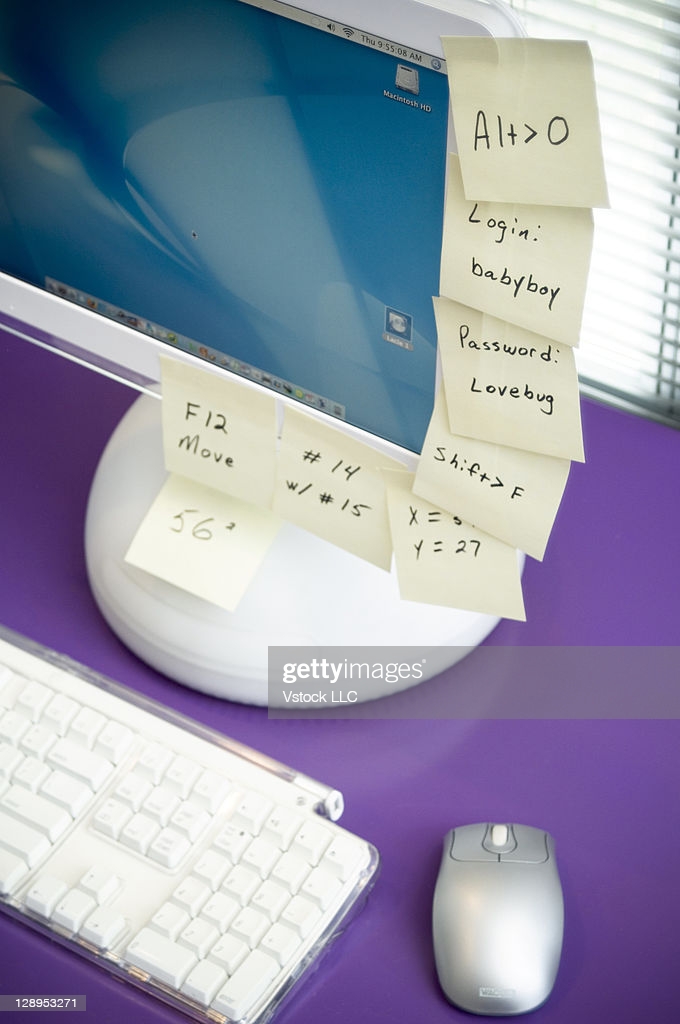 Thu 9:55:08 AM
Macintosh HD
Alt>O
Login:
babyboy
Password:
Lovebug
Shift>F
F12
Move
#14
w/#15
56²
Y = 27
gettyimages®
Vstock LLC
128953271